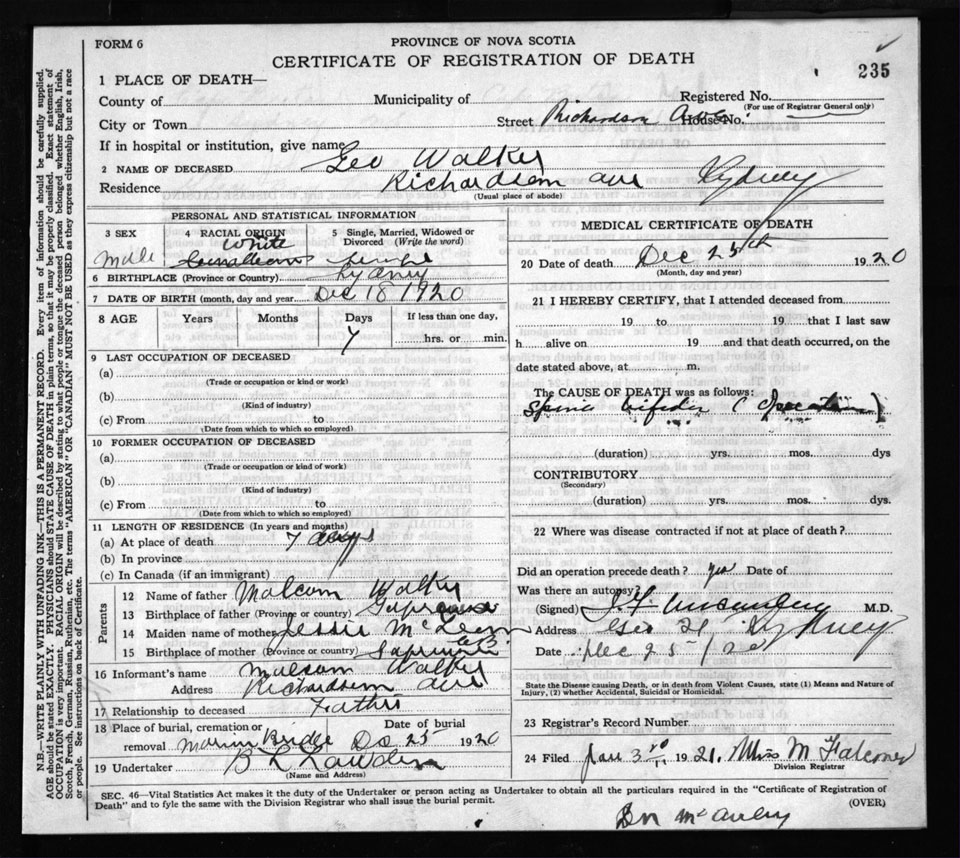 FORM 6
PROVINCE OF NOVA SCOTIA
CERTIFICATE OF REGISTRATION OF DEATH
235
1 PLACE OF DEATH—
County of Municipality of Registered No.
(For use of Registrar General only)
City or Town Street Richardson Ave House No.
If in hospital or institution, give name
2 NAME OF DECEASED Leo Walker
Residence Richardson ave Sydney
(Usual place of abode)
PERSONAL AND STATISTICAL INFORMATION
3 SEX 4 RACIAL ORIGIN 5 Single, Married, Widowed or Divorced (Write the word)
Male White Single
6 BIRTHPLACE (Province or Country) Sydney
7 DATE OF BIRTH (month, day and year) Dec 18 1920
8 AGE Years Months Days If less than one day,
7 hrs. or min.
9 LAST OCCUPATION OF DECEASED
(a)
(Trade or occupation or kind or work)
(b)
(Kind of industry)
(c) From to
(Date from which to which so employed)
10 FORMER OCCUPATION OF DECEASED
(a)
(Trade or occupation or kind of work)
(b)
(Kind of industry)
(c) From to
(Date from which to which so employed)
11 LENGTH OF RESIDENCE (In years and months)
(a) At place of death 7 days
(b) In province
(c) In Canada (if an immigrant)
Parents
12 Name of father Malcom Walker
13 Birthplace of father (Province or country)
14 Maiden name of mother Jessie McLean
15 Birthplace of mother (Province or country) CB
16 Informant's name Malcom Walker
Address Richardson ave
17 Relationship to deceased Father
18 Place of burial, cremation or removal Marion Bridge Date of burial Dec 25 1920
19 Undertaker
(Name and Address)
MEDICAL CERTIFICATE OF DEATH
20 Date of death Dec 25th 1920
(Month, day and year)
21 I HEREBY CERTIFY, that I attended deceased from
19 to 19 that I last saw
h alive on 19 and that death occurred, on the
date stated above, at m.
The CAUSE OF DEATH was as follows:
Spina bifida (Operation)
(duration) yrs. mos. dys
CONTRIBUTORY
(Secondary)
(duration) yrs. mos. dys.
22 Where was disease contracted if not at place of death?
Did an operation precede death? yes Date of
Was there an autopsy
(Signed) M.D.
Address Sydney
Date Dec 25/20
State the Disease causing Death, or in death from Violent Causes, state (1) Means and Nature of
Injury, (2) whether Accidental, Suicidal or Homicidal.
23 Registrar's Record Number
24 Filed Jan 3rd 1921. Miss M Falconer
Division Registrar
SEC. 46—Vital Statistics Act makes it the duty of the Undertaker or person acting as Undertaker to obtain all the particulars required in the "Certificate of Registration of
Death" and to fyle the same with the Division Registrar who shall issue the burial permit. (OVER)
N.B.—WRITE PLAINLY WITH UNFADING INK—THIS IS A PERMANENT RECORD. Every item of information should be carefully supplied.
AGE should be stated EXACTLY. PHYSICIANS should STATE CAUSE OF DEATH in plain terms, so that it may be properly classified. Exact statement of
OCCUPATION is very important. RACIAL ORIGIN will be described by stating to what people or tongue the deceased person belonged whether English, Irish,
Scotch, French, German, Russian, Ruthenian, etc. The terms "AMERICAN" OR "CANADIAN" MUST NOT BE USED as they express citizenship but not a race
or people. See instructions on back of Certificate.